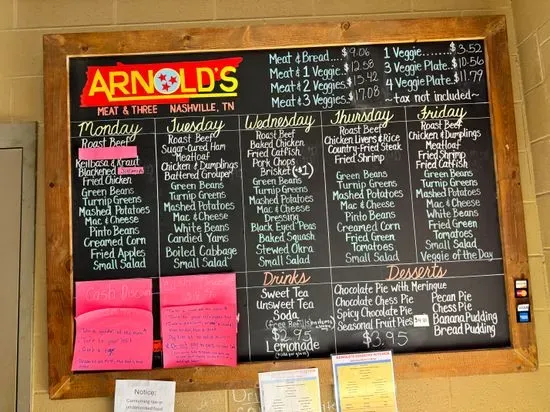 ARNOLD'S
MEAT & THREE NASHVILLE, TN
Meat & Bread.... $9.06
Meat & 1 Veggie.. $12.58
Meat & 2 Veggies. $15.42
Meat & 3 Veggies. $17.08
1 Veggie........ $3.52
3 Veggie Plate.. $10.56
4 Veggie Plate.. $11.79
~tax not included~
Monday
Roast Beef
Keilbasa & Kraut
Blackened
Fried Chicken
Green Beans
Turnip Greens
Mashed Potatoes
Mac & Cheese
Pinto Beans
Creamed Corn
Fried Apples
Small Salad
Tuesday
Roast Beef
Sugar-Cured Ham
Meatloaf
Chicken & Dumplings
Battered Grouper
Green Beans
Turnip Greens
Mashed Potatoes
Mac & Cheese
White Beans
Candied Yams
Boiled Cabbage
Small Salad
Wednesday
Roast Beef
Baked Chicken
Fried Catfish
Pork Chops
Brisket (+$2)
Green Beans
Turnip Greens
Mashed Potatoes
Mac & Cheese
Dressing
Black Eyed Peas
Baked Squash
Stewed Okra
Small Salad
Thursday
Roast Beef
Chicken Livers & Rice
Country-Fried Steak
Fried Shrimp
Green Beans
Turnip Greens
Mashed Potatoes
Mac & Cheese
Pinto Beans
Fried Green
Tomatoes
Small Salad
Friday
Roast Beef
Chicken & Dumplings
Meatloaf
Fried Shrimp
Fried Catfish
Green Beans
Turnip Greens
Mashed Potatoes
Mac & Cheese
White Beans
Fried Green
Tomatoes
Small Salad
Veggie of the Day
Drinks
Sweet Tea
UnSweet Tea
Soda
(free Refills)
$2.95
Lemonade
Desserts
Chocolate Pie with Meringue
Chocolate Chess Pie
Spicy Chocolate Pie
Seasonal Fruit Pies
$3.95
Pecan Pie
Chess Pie
Banana Pudding
Bread Pudding
Notice: